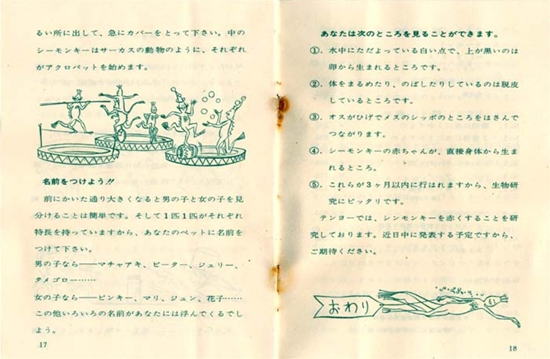 るい所に出して、急にカバーをとって下さい。中の
シーモンキーはサーカスの動物のように、それぞれ
がアクロバットを始めます。
名前をつけよう!!
前にかいた通り大きくなると男の子と女の子を見
分けることは簡単です。そして1匹1匹がそれぞれ
特長を持っていますから、あなたのペットに名前を
つけて下さい。
男の子なら――マチャアキ、ピーター、ジュリー、
タメゴロー……
女の子なら――ピンキー、マリ、ジュン、花子……
この他いろいろの名前があなたには浮んでくるでし
ょう。
17
あなたは次のところを見ることができます。
①．水中にただよっている白い点で、上が黒いのは
卵から生まれるところです。
②．体をまるめたり、のばしたりしているのは脱皮
しているところです。
③．オスがひげでメスのシッポのところをはさんで
つながります。
④．シーモンキーの赤ちゃんが、直接身体から生ま
れるところ。
⑤．これらが3ヶ月以内に行はれますから、生物研
究にピッタリです。
テンヨーでは、シンモンキーを赤くすることを研
究しております。近日中に発表する予定ですから、
ご期待ください。
おわり
18